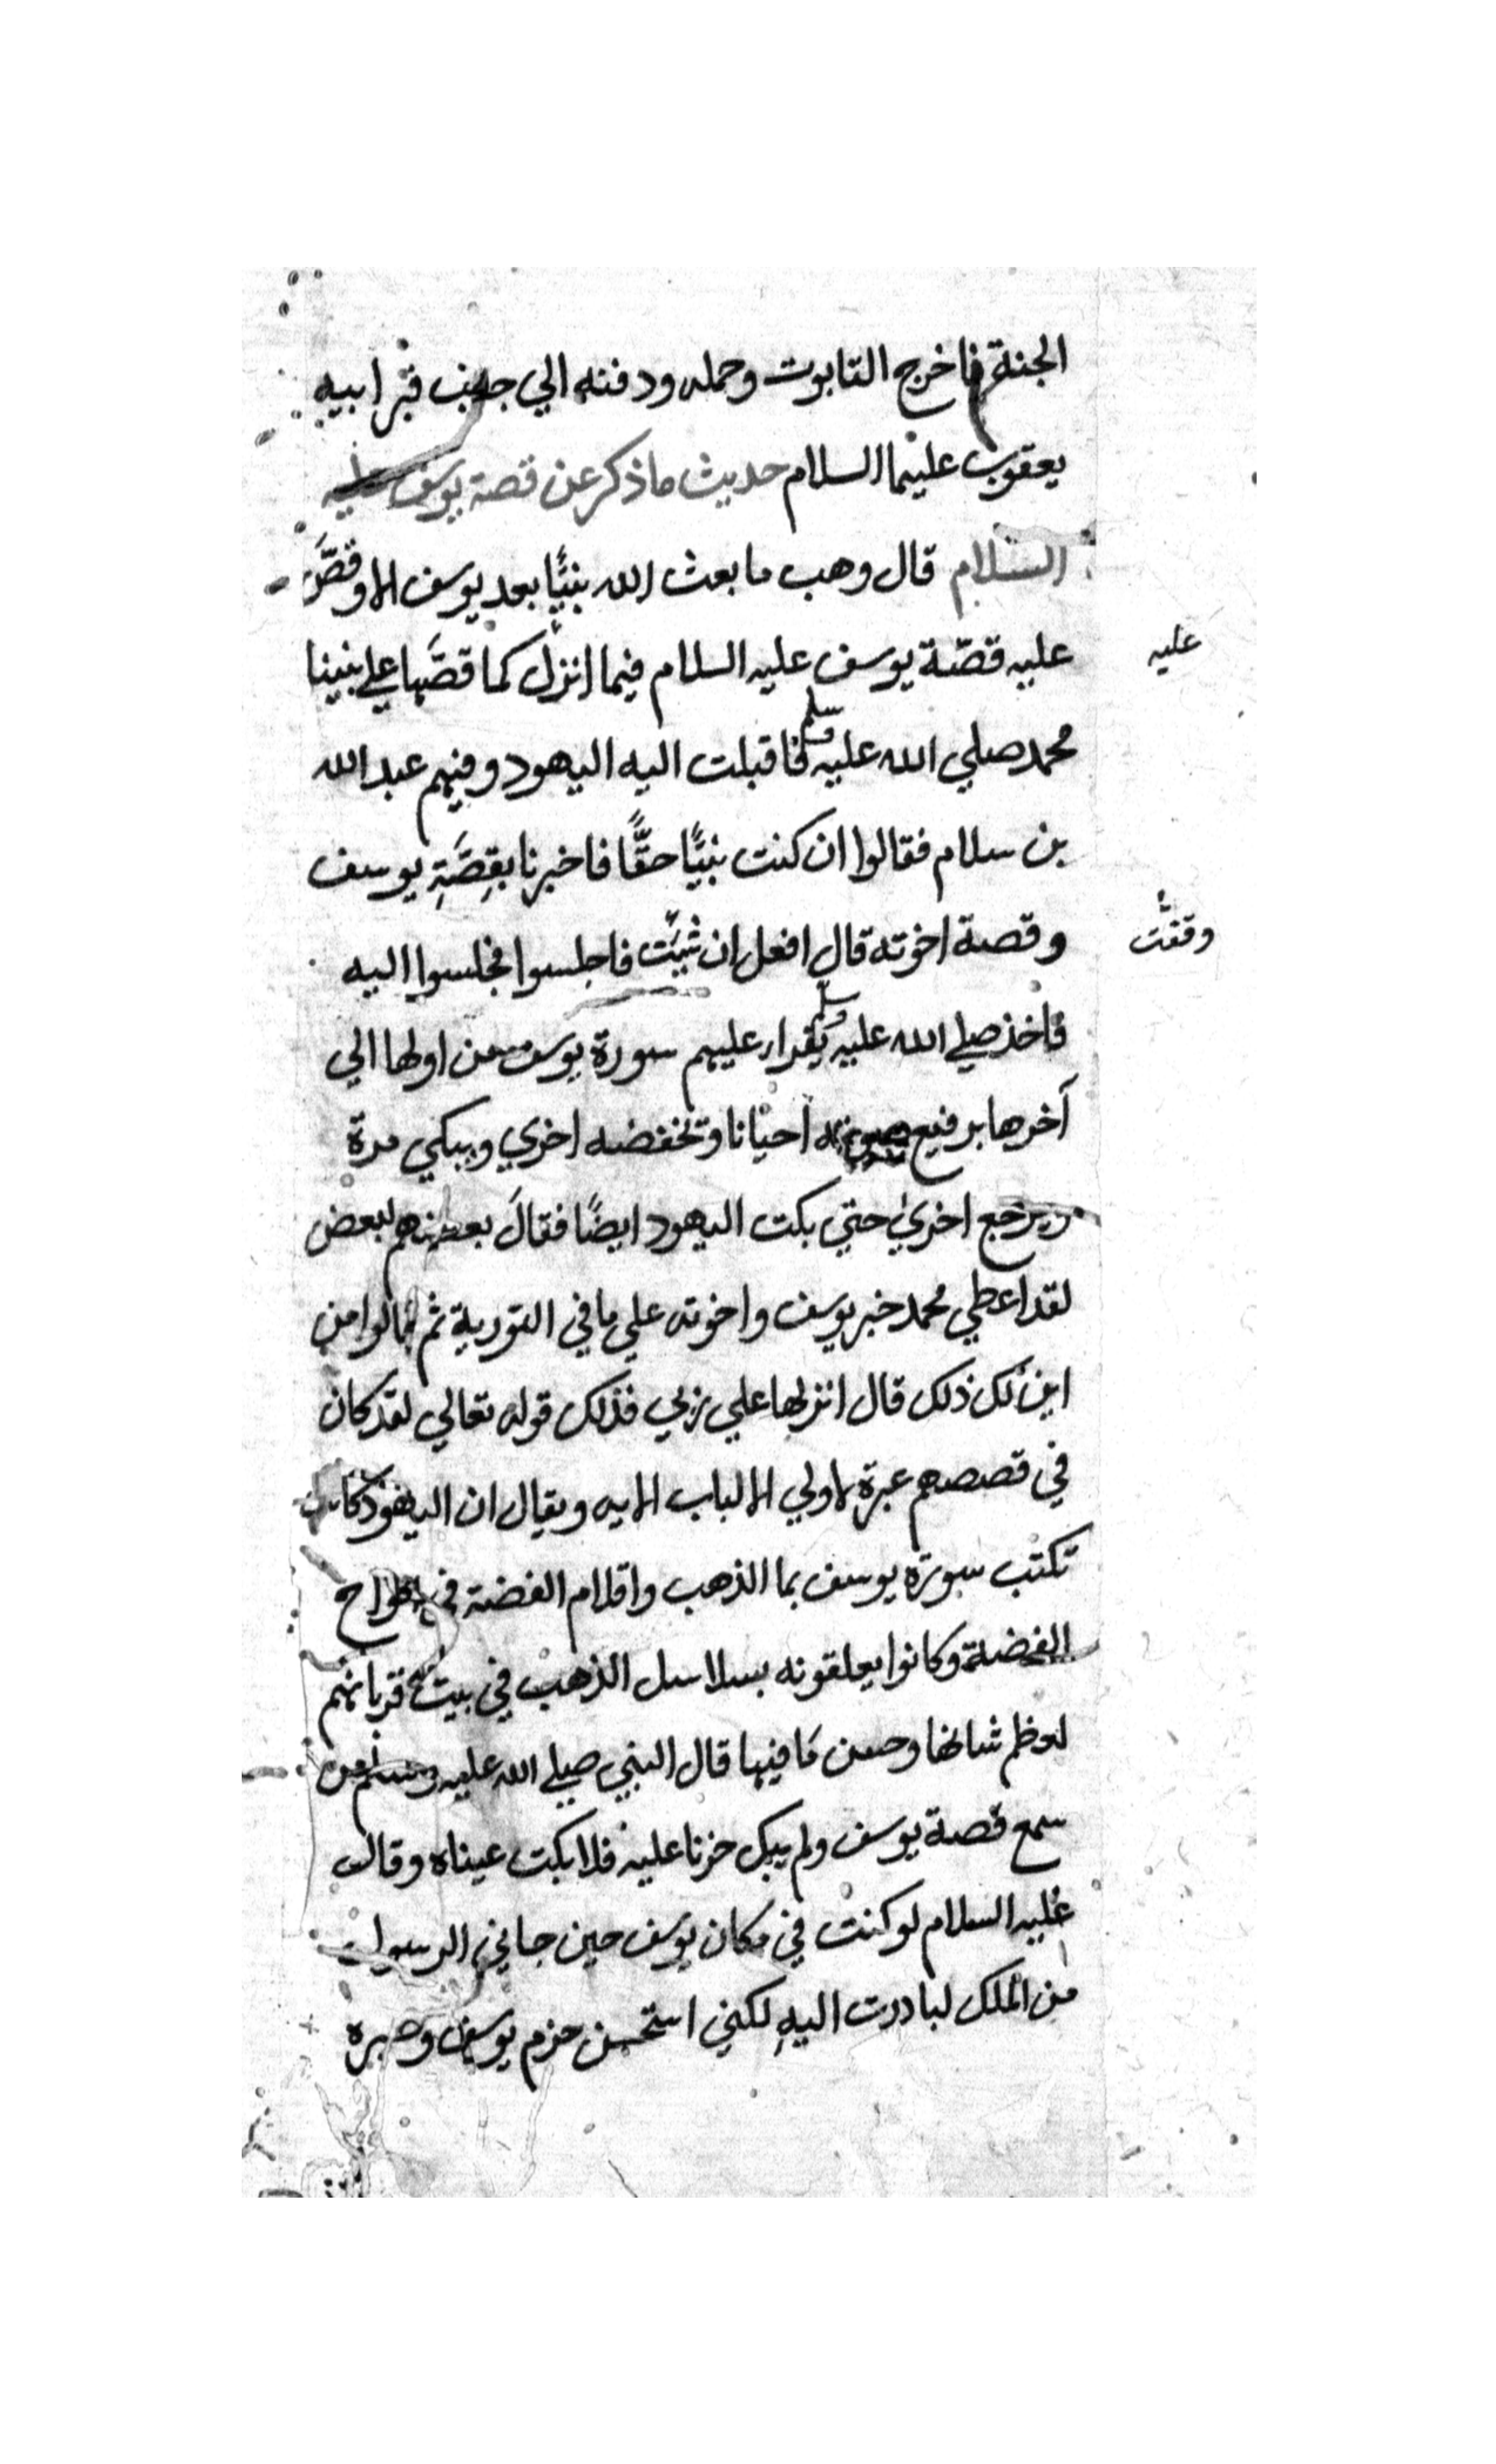 الجنة فاخرج التابوت وحمله ودفنه الي جنب قبر ابيه
يعقوب عليهما السلام حديث ما ذكر عن قصة يوسف عليه
السلام قال وهب ما بعث الله نبيًا بعد يوسف الا وقصَّ
عليه قصّة يوسف عليه السلام فيما انزل كما قصَّها علي نبينا
عليه
محمد صلي الله عليه وسلم فاقبلت اليه اليهود وفيهم عبد الله
بن سلام فقالوا ان كنت نبيًّا حقًّا فاخبرنا بقِصَّةِ يوسف
وقصة اخوته قال افعل ان شيَّت فاجلسوا فجلسوا اليه
وقفت
فاخذ صلي الله عليه وسلم يقرا عليهم سورة يوسف من اولها الي
آخرها يرفع صوته احيانا وتخفضه اخري ويبكي مرة
ويرجع اخري حتي بكت اليهود ايضًا فقالَ بعضهم لبعض
لقد اعطي محمد خبر يوسف واخوته علي ما في التورية ثم قالوا من
اين لك ذلك قال انزلها علي ربي فذلك قوله تعالي لقد كان
في قصصهم عبرة لاولي الالباب الايه ويقال ان اليهود كانت
تكتب سورة يوسف بما الذهب واقلام الفضة في الواح
الفضة وكانوا يعلقونه بسلاسل الذهب في بيت قربانهم
لعظم شانها وحسن ما فيها قال النبي صلي الله عليه وسلم من
سمع قصة يوسف ولم يبك حزنا عليه فلا بكت عيناه وقال
عليه السلام لو كنت في مكان يوسف حين جاني الرسول
من الملك لبادرت اليهِ لكني استحسن حزم يوسف وصبره